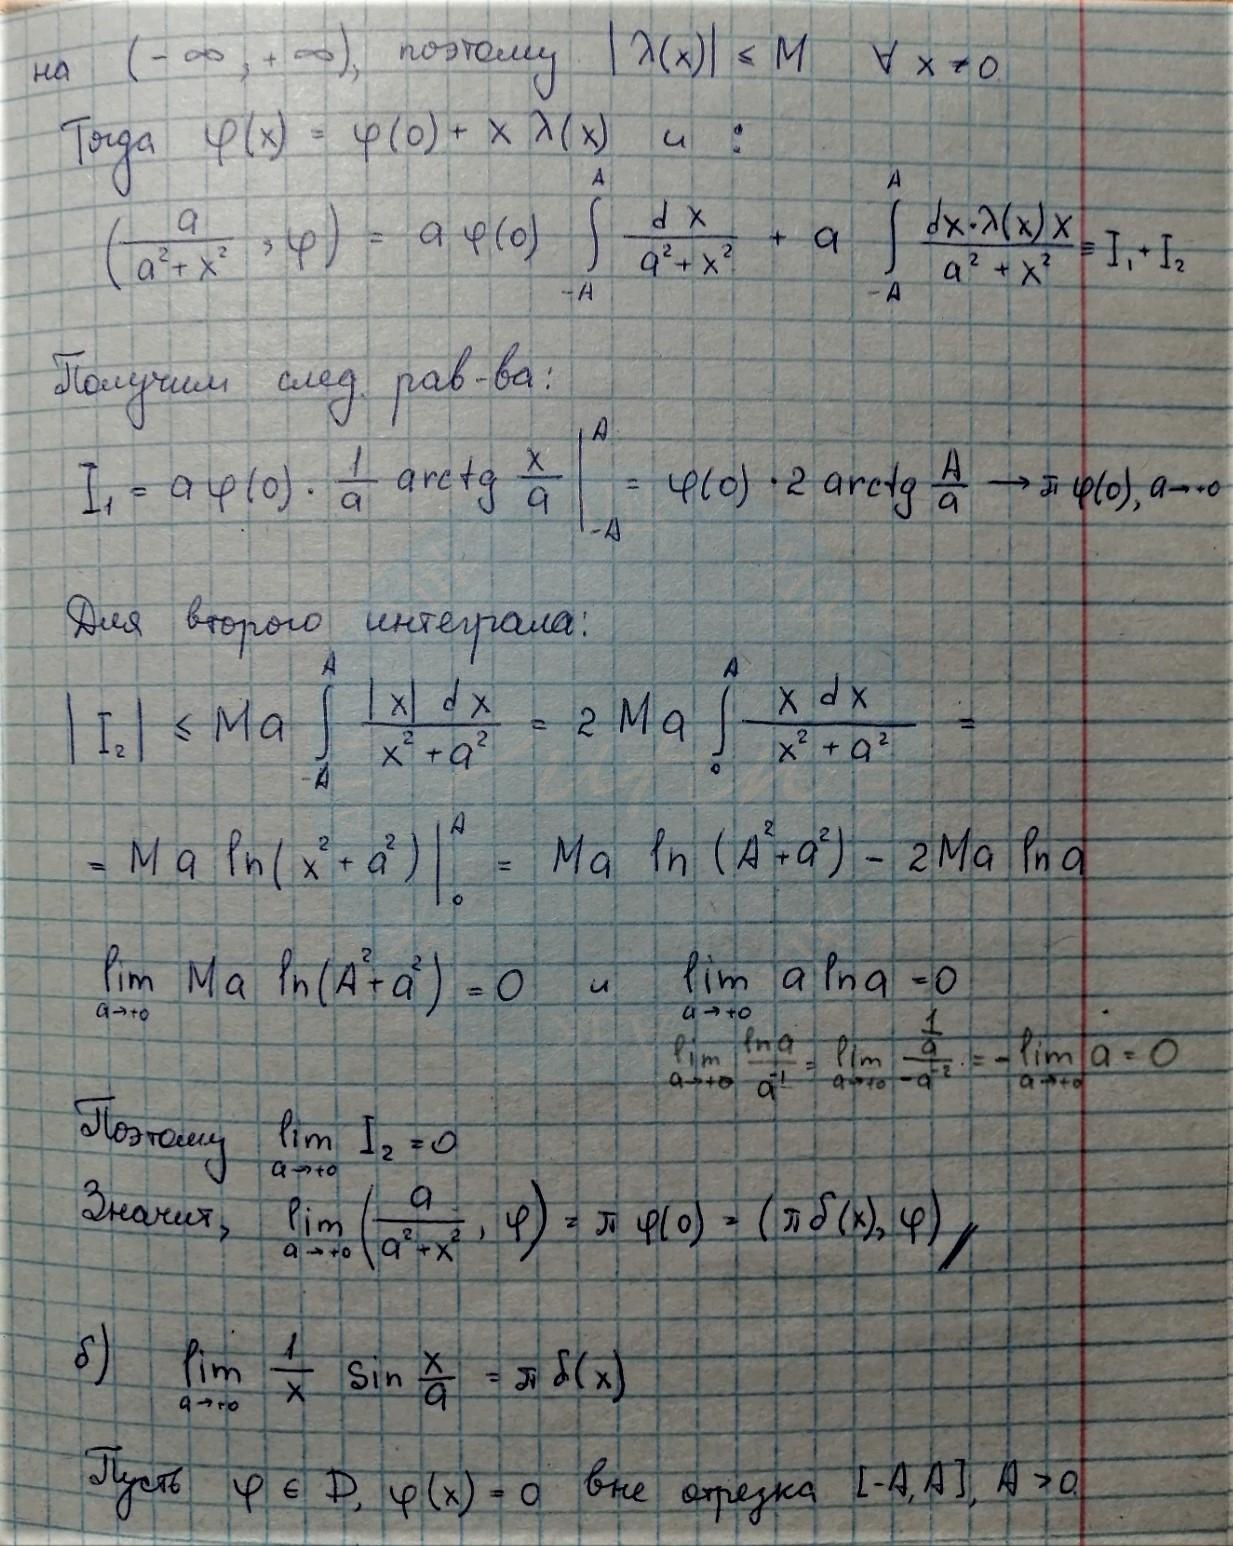 на (-∞, +∞), поэтому |λ(x)| ≤ M ∀ x ≠ 0
Тогда φ(x) = φ(0) + x λ(x) и :
(a/(a²+x²), φ) = a φ(0) ∫_{-A}^{A} dx/(a²+x²) + a ∫_{-A}^{A} dx·λ(x)x/(a²+x²) ≡ I₁ + I₂
Получим след. рав-ва:
I₁ = a φ(0) · 1/a arctg x/a |_{-A}^{A} = φ(0) · 2 arctg A/a → π φ(0), a→+0
Для второго интеграла:
|I₂| ≤ Ma ∫_{-A}^{A} |x| dx/(x²+a²) = 2 Ma ∫_{0}^{A} x dx/(x²+a²) =
= Ma ln(x²+a²) |_{0}^{A} = Ma ln(A²+a²) - 2Ma ln a
lim_{a→+0} Ma ln(A²+a²) = 0 и lim_{a→+0} a ln a = 0
lim_{a→+0} ln a/a⁻¹ = lim_{a→+0} (1/a)/(-a⁻²) = - lim_{a→+0} a = 0
Поэтому lim_{a→+0} I₂ = 0
Значит, lim_{a→+0} (a/(a²+x²), φ) = π φ(0) = (π δ(x), φ) //
б) lim_{a→+0} 1/x sin x/a = π δ(x)
Пусть φ ∈ D, φ(x) = 0 вне отрезка [-A, A], A > 0